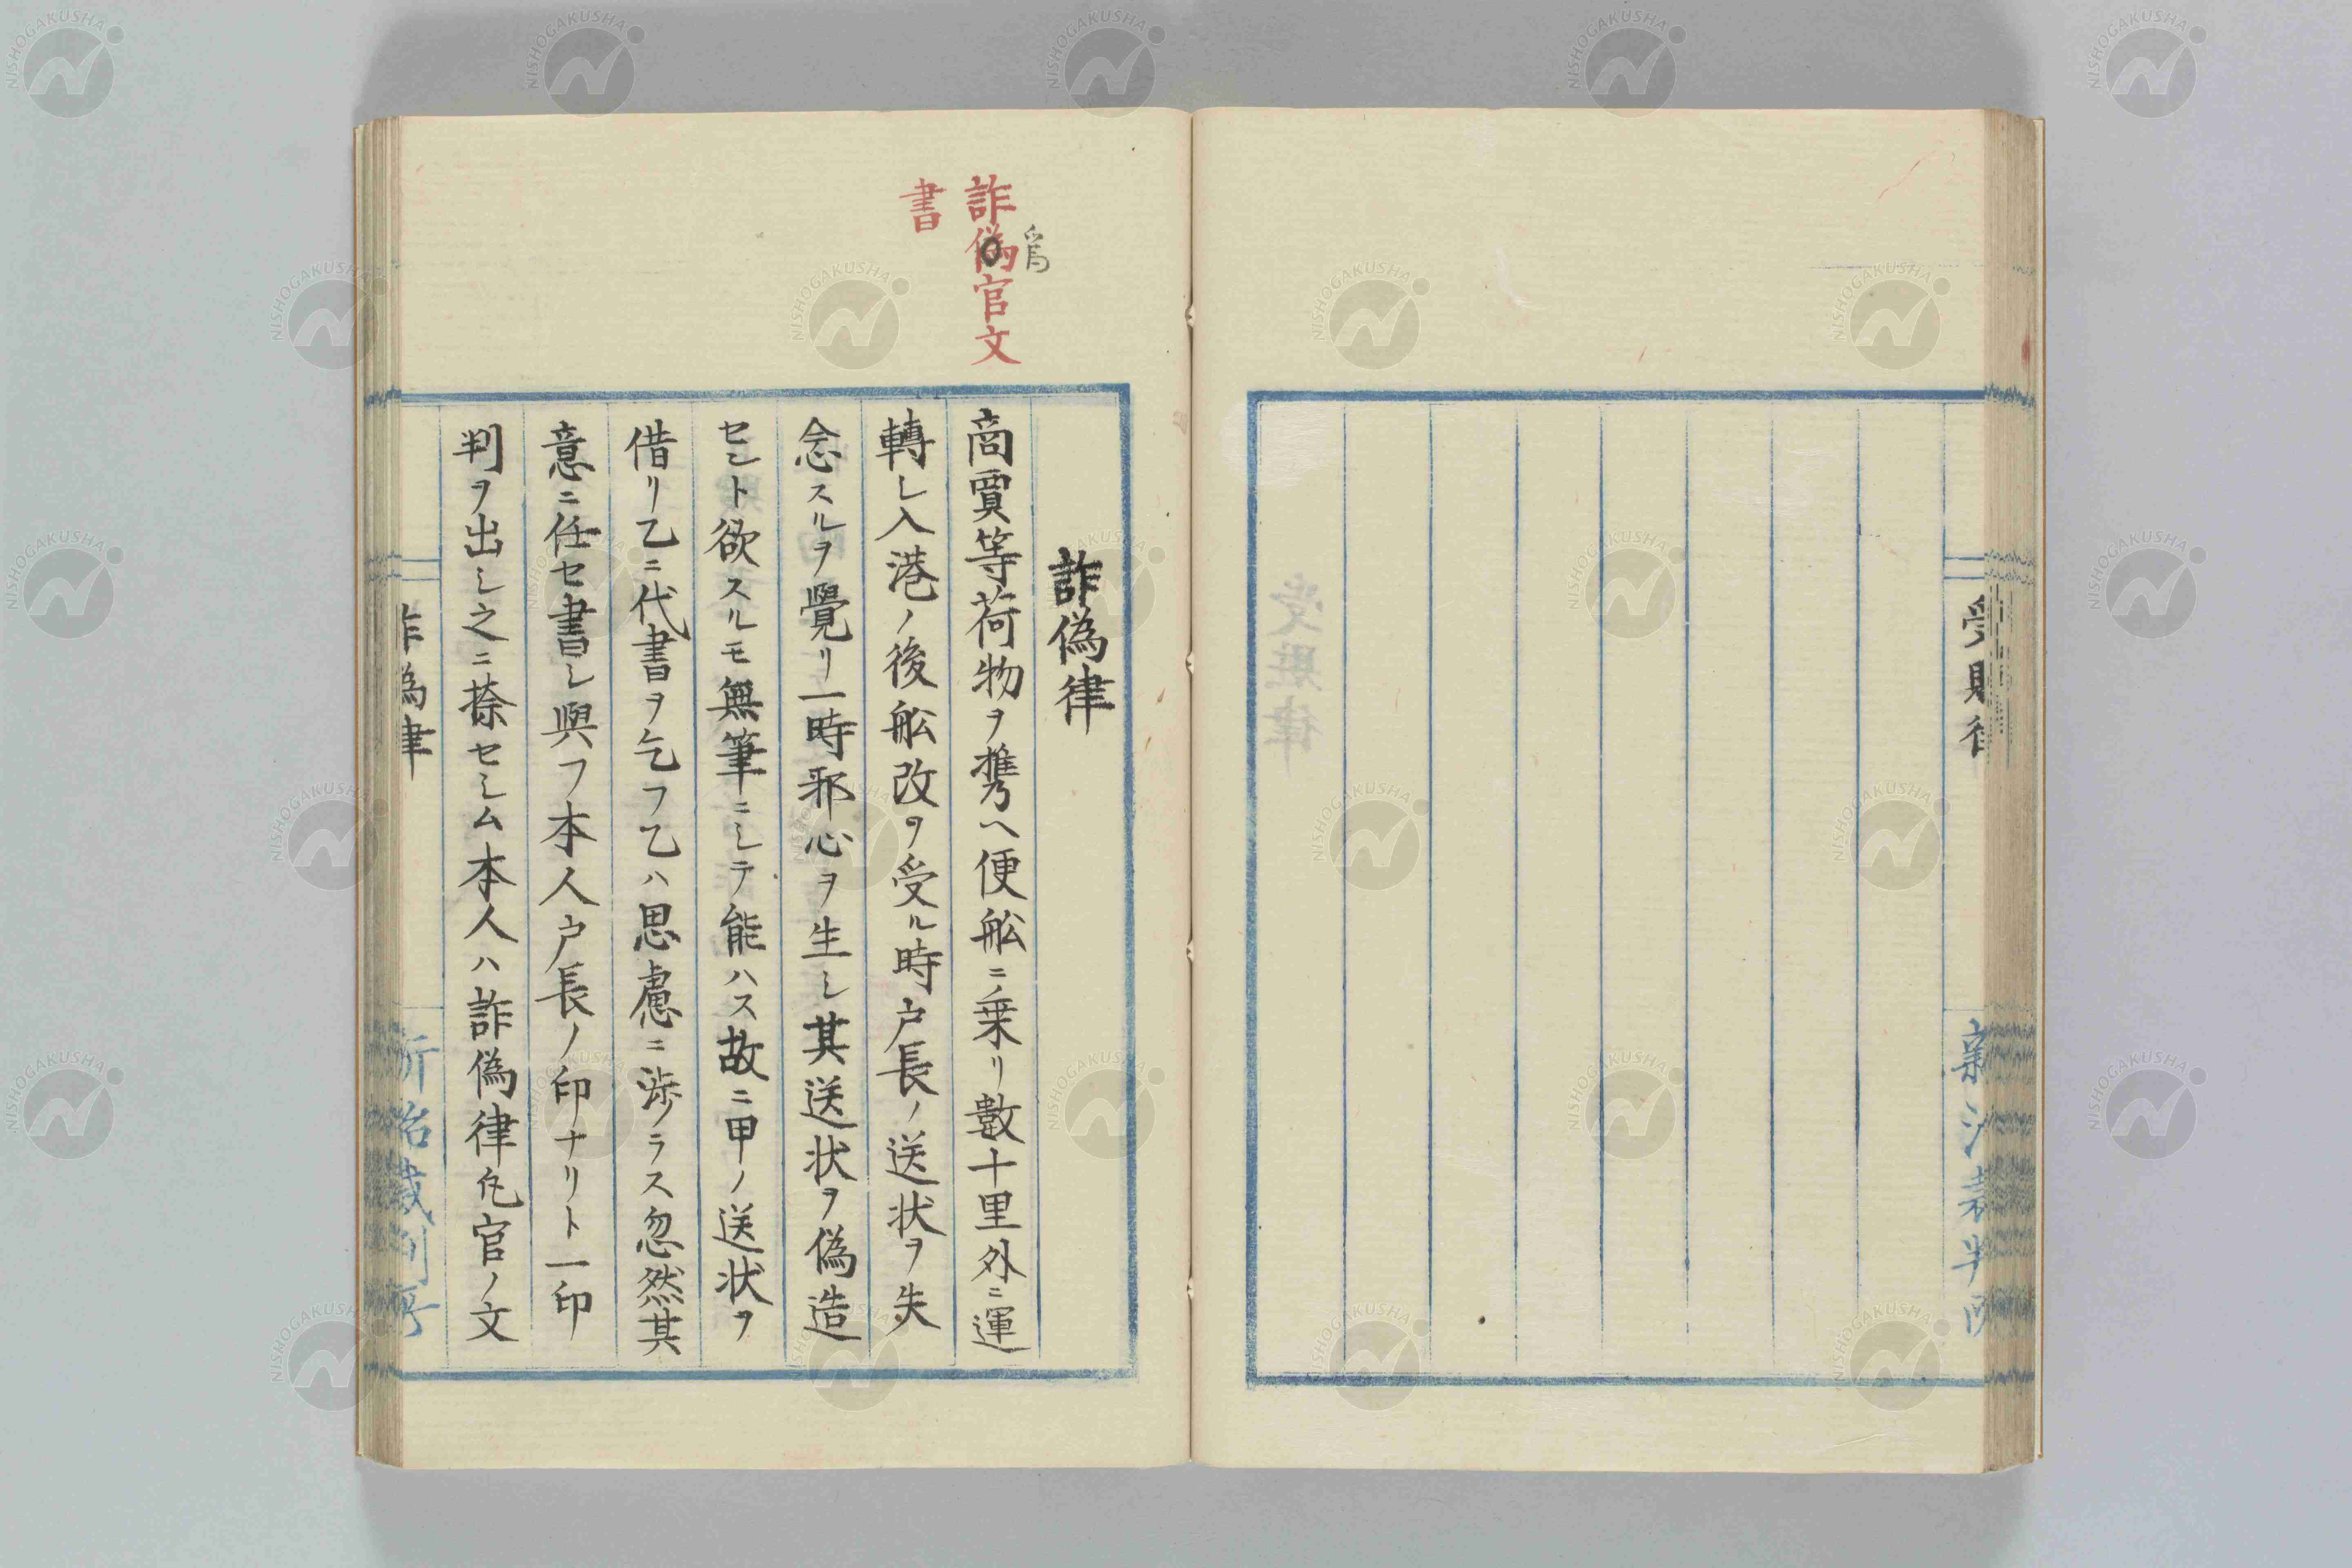 受賍律
詐偽官文
書
爲
詐偽律
商賈等荷物ヲ携ヘ便舩ニ乗リ數十里外ニ運
轉シ入港ノ後舩改ヲ受ル時戸長ノ送状ヲ失
念スルヲ覺リ一時邪心ヲ生シ其送状ヲ偽造
セント欲スルモ無筆ニシテ能ハス故ニ甲ノ送状ヲ
借リ乙ニ代書ヲ乞フ乙ハ思慮ニ渉ラス忽然其
意ニ任セ書シ與フ本人戸長ノ印ナリト一印
判ヲ出シ之ニ捺セシム本人ハ詐偽律凢官ノ文
詐偽律
新治裁判所
NISHOGAKUSHA